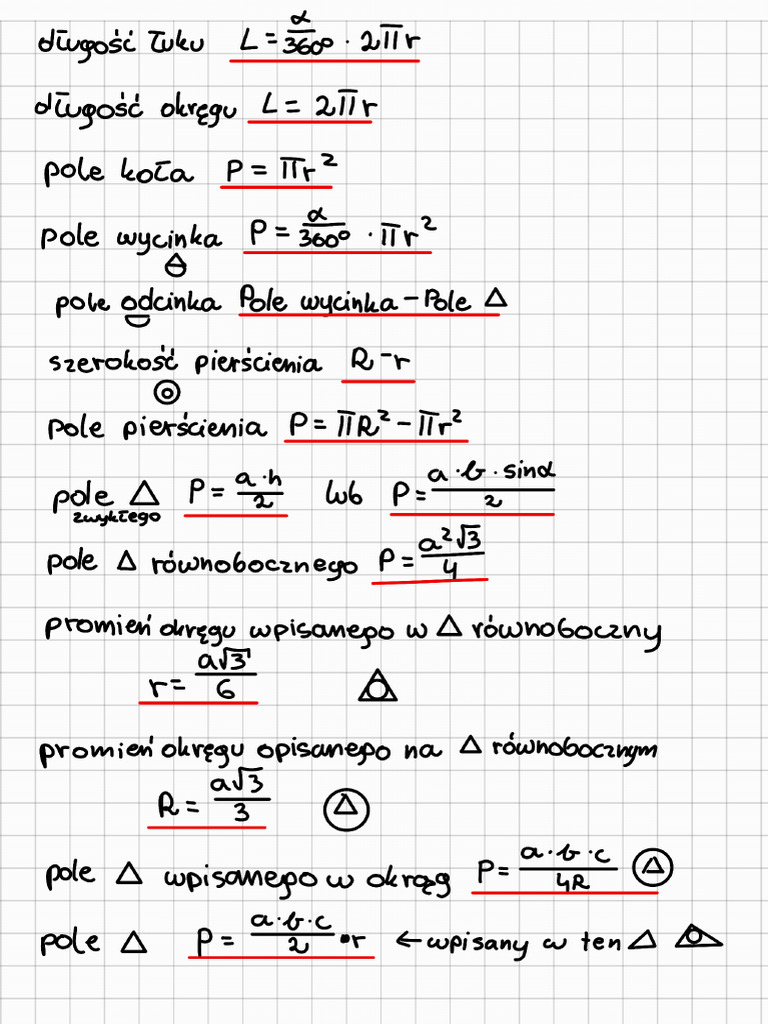 długość łuku L = α/360° · 2πr
długość okręgu L = 2πr
pole koła P = πr²
pole wycinka P = α/360° · πr²
pole odcinka Pole wycinka - Pole △
szerokość pierścienia R - r
pole pierścienia P = πR² - πr²
pole △ zwykłego P = a·h/2 lub P = a·b·sinα/2
pole △ równobocznego P = a²√3/4
promień okręgu wpisanego w △ równoboczny
r = a√3/6
promień okręgu opisanego na △ równobocznym
R = a√3/3
pole △ wpisanego w okrąg P = a·b·c/4R
pole △ P = a·b·c/2 · r ← wpisany w ten △